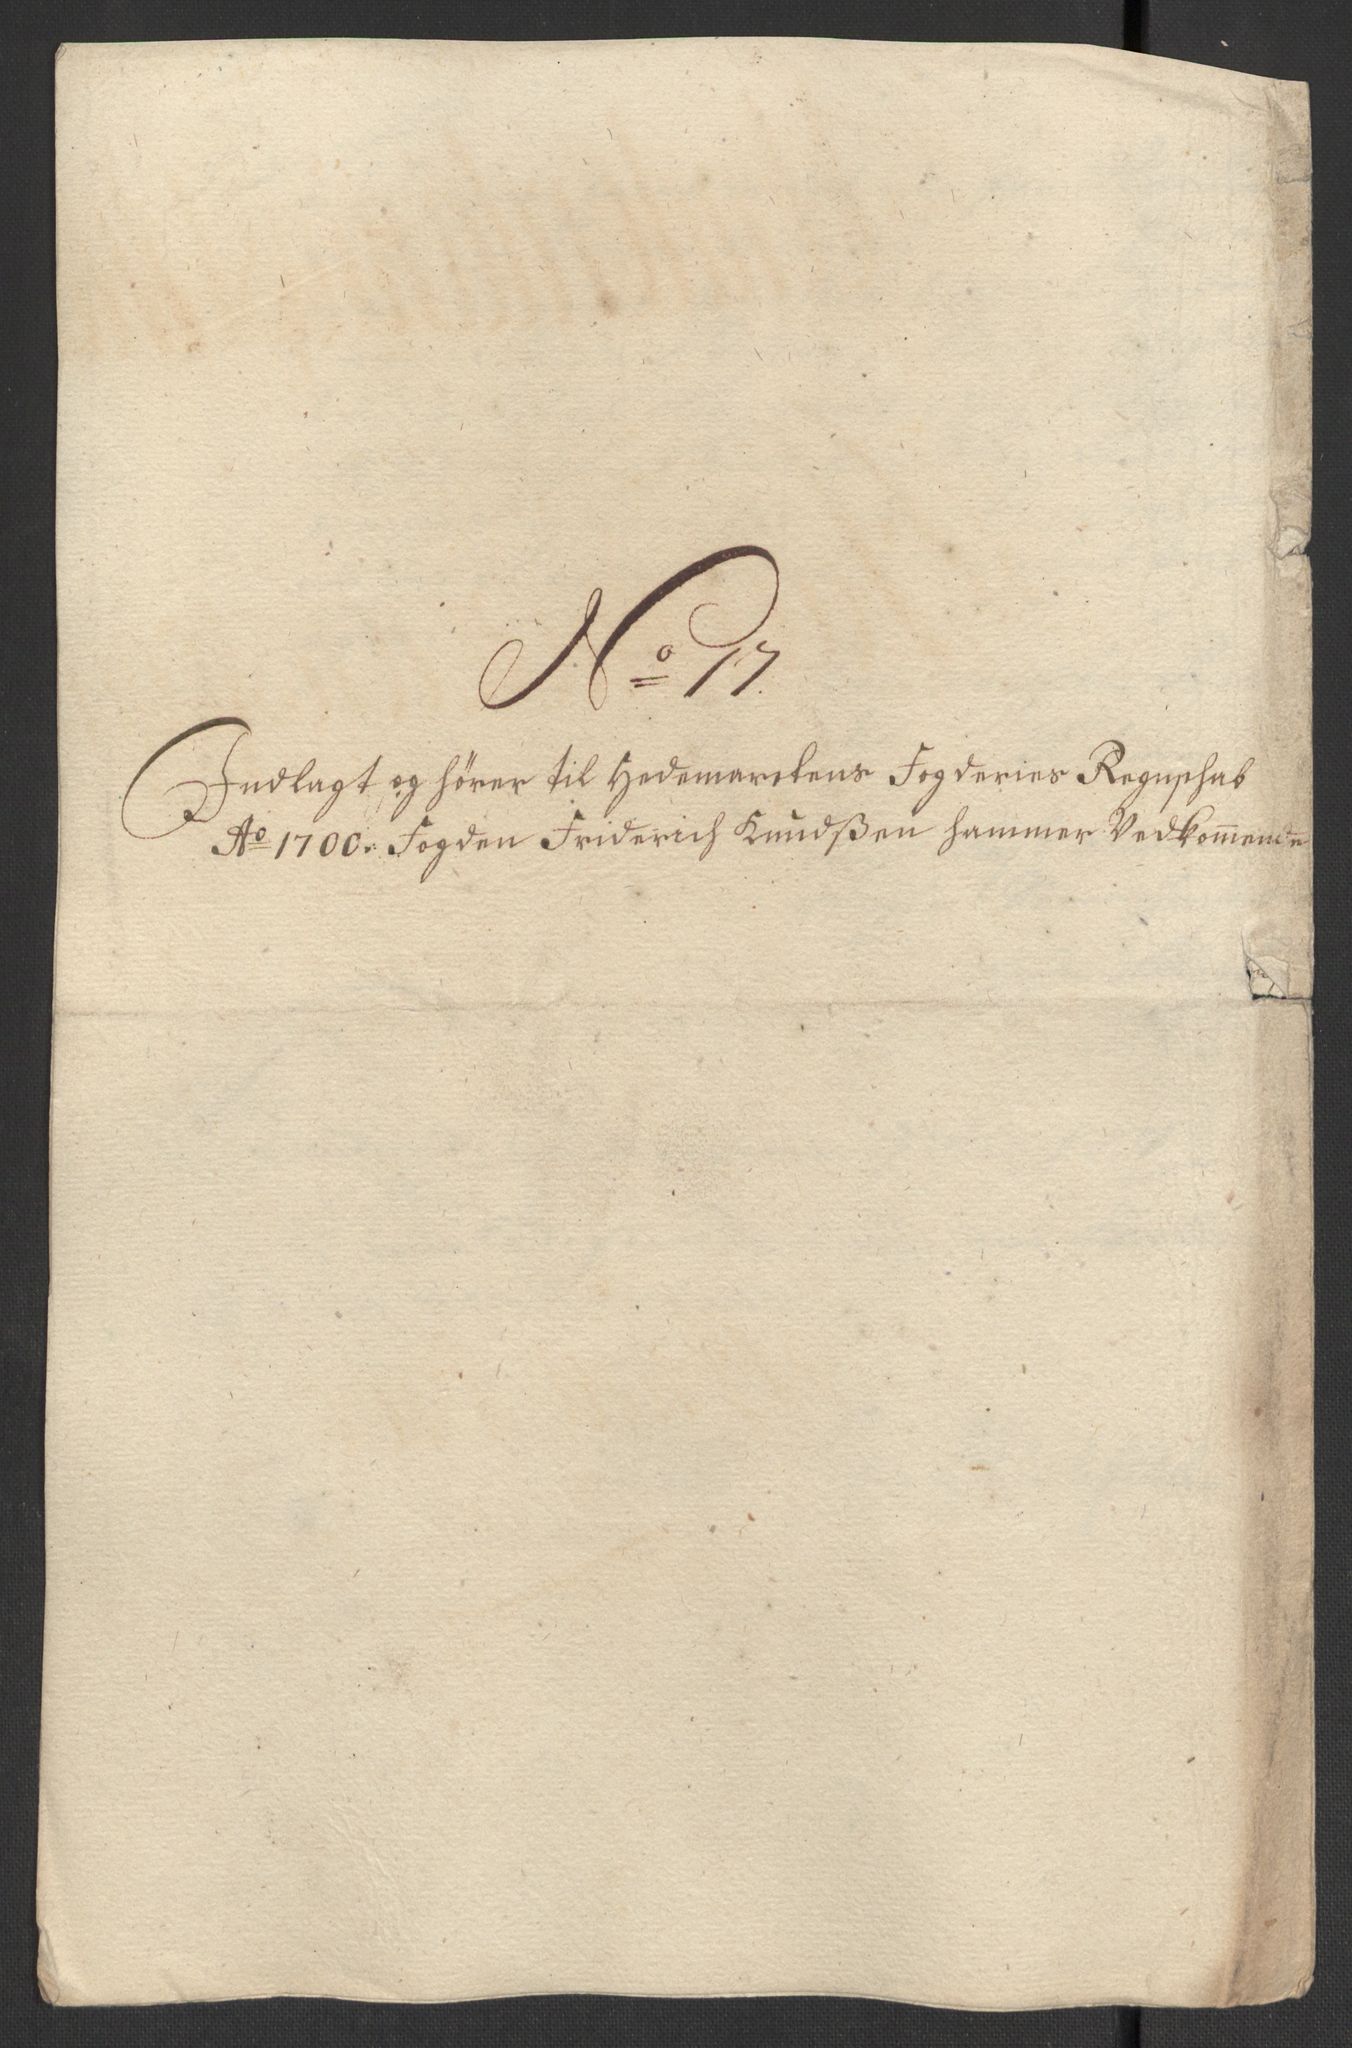 No 17.
Indlagt og hörer til Hedemarckens Fogderies Regnschab
Ao 1700. Fogden Friderich Knudsßen hammer Vedkom̄ende